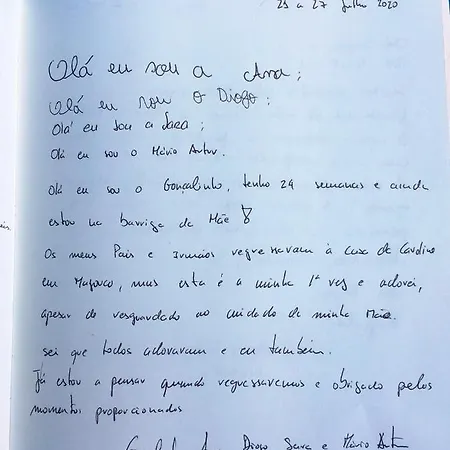 25 a 27 Julho 2020
Olá eu sou a Ana;
Olá eu sou o Diogo;
Olá eu sou a Sara;
Olá eu sou o Mário Artur.
Olá eu sou o Gonçalinho, tenho 24 semanas e ainda
estou na barriga da Mãe
Os meus Pais e Irmãos regressaram à casa de Cardino
em Mafavco, mas esta é a minha 1ª vez e adorei,
apesar de resguardado ao cuidado de minha Mãe.
sei que todos adoraram e eu também.
Já estou a pensar quando regressaremos e obrigado pelos
momentos proporcionados
Diogo Sara e Mário Artur